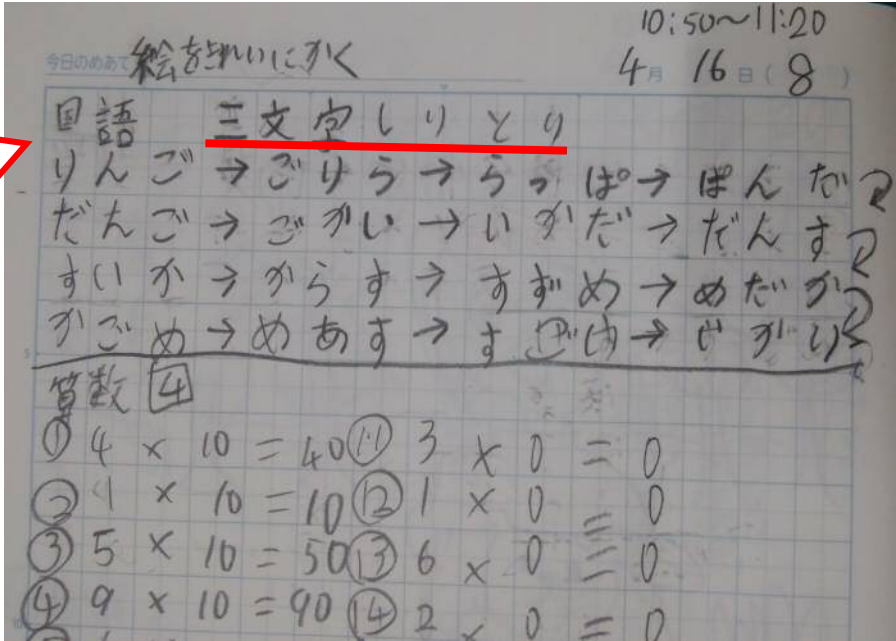 10:50～11:20
今日のめあて 絵をきれいにかく 4月 16日(8)
国語 三文字しりとり
りんご→ごりら→らっぱ→ぱんだ
だんご→ごかい→いかだ→だんす
すいか→からす→すずめ→めだか
かごめ→めあす→す
算数 4
① 4×10=40 ⑪ 3×0=0
② 1×10=10 ⑫ 1×0=0
③ 5×10=50 ⑬ 6×0=0
④ 9×10=90 ⑭ 2×0=0